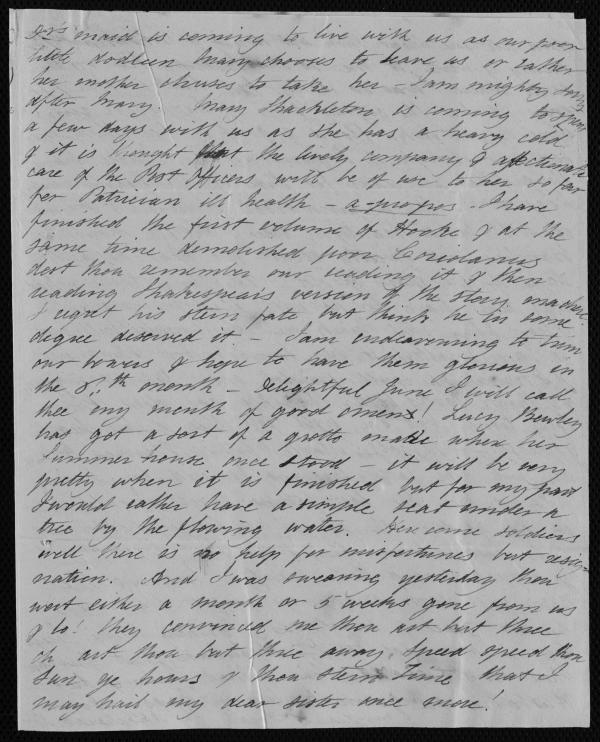 Drs maid is coming to live with us as our poor
little Mary chooses to leave us or rather
her mother chuses to take her - I am mighty sorry
after Mary. Mary Shackleton is coming to spend
a few days with us as she has a heavy cold
& it is thought that the lively company & affectionate
care of the Post Officers will be of use to her so far
for Patrician ill health - a-pro-pos - I have
finished the first volume of Hooke & at the
same time demolished poor Coriolanus
dost thou remember our reading it & then
reading Shakespears version of the story
I regret his stern fate but think he in some
degree deserved it - I am endeavouring to trim
our bowers & hope to have them glorious in
the 6th month - Delightful June I will call
thee my month of good omens! Lucy Bewley
has got a sort of a grotto made where her
Summer house once stood - it will be very
pretty when it is finished but for my part
I would rather have a simple seat under a
tree by the flowing water. Here come soldiers
well there is no help for misfortunes but resig-
nation. And I was swearing yesterday thou
wert either a month or 5 weeks gone from us
& lo! they convinced me thou art but three
oh art thou but three away speed speed thou
Sun ye hours & thou stern Time that I
may hail my dear sister once more!